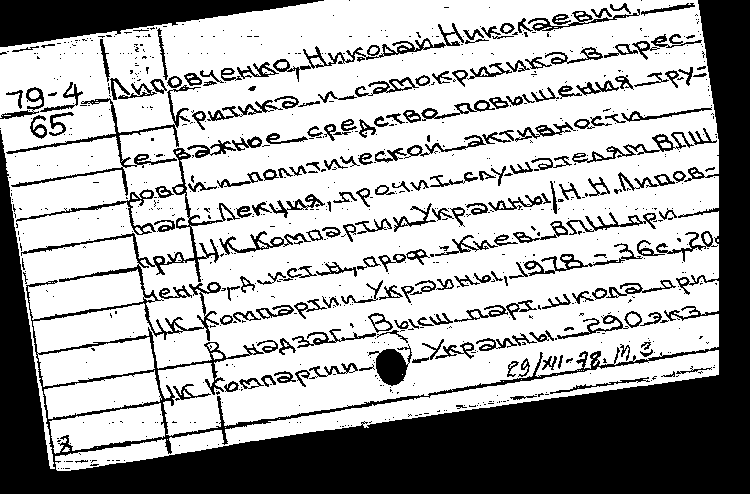 79-4
65
Липовченко, Николай Николаевич.
Критика и самокритика в прес-
се - важное средство повышения тру-
довой и политической активности
масс: Лекция, прочит. слушателям ВПШ
при ЦК Компартии Украины / Н.Н. Липов-
ченко, д. ист. н., проф. - Киев: ВПШ при
ЦК Компартии Украины, 1978. - 36с.; 20
В надзаг.: Высш. парт. школа при
ЦК Компартии Украины. - 290 экз.
29/XII-78. М.З.
8